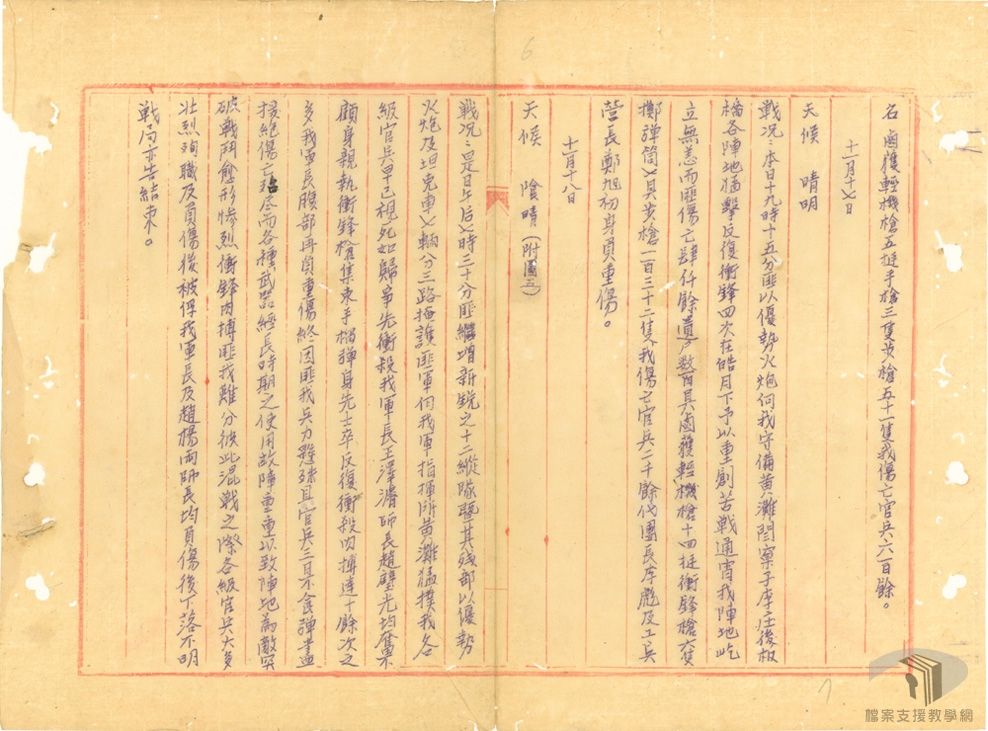 名鹵獲輕機槍五挺手槍三隻步槍五十一隻我傷亡官兵六百餘。
十一月十七日
天候 晴明
戰況：本日十九時十五分匪以優勢火炮向我守備黃灘閆窠子李庄後板
橋各陣地猛擊反復衝鋒四次在皓月下予以重創苦戰通宵我陣地屹
立無恙而匪傷亡肆仟餘遺尸数百具鹵獲輕機槍十四挺衝鋒槍六隻
擲彈筒七具步槍一百三十二隻我傷亡官兵二千餘代團長李彪及工兵
營長鄭旭初身負重傷。
十一月十八日
天候 陰晴（附圖五）
戰況：是日午后七時三十分匪繼增新銳之十二縱隊暨其殘部以優勢
火炮及坦克車七輛分三路掩護匪軍向我軍指揮所黃灘猛撲我各
級官兵早已視死如歸爭先衝殺我軍長王澤濬師長趙璧光均奮不
顧身親執衝鋒槍集束手榴彈身先士卒反復衝殺肉搏達十餘次之
多我軍長腹部再負重傷終因匪我兵力懸殊且官兵三日不食彈盡
援絕傷亡殆尽而各種武器經長時期之使用故障重重以致陣地為敵突
破戰鬥愈形慘烈衝鋒肉搏匪我難分彼此混戰之際各級官兵大多
壯烈殉職及負傷後被俘我軍長及趙楊兩師長均負傷後下落不明
戰局亦告結束。
6
7
檔案支援教學網